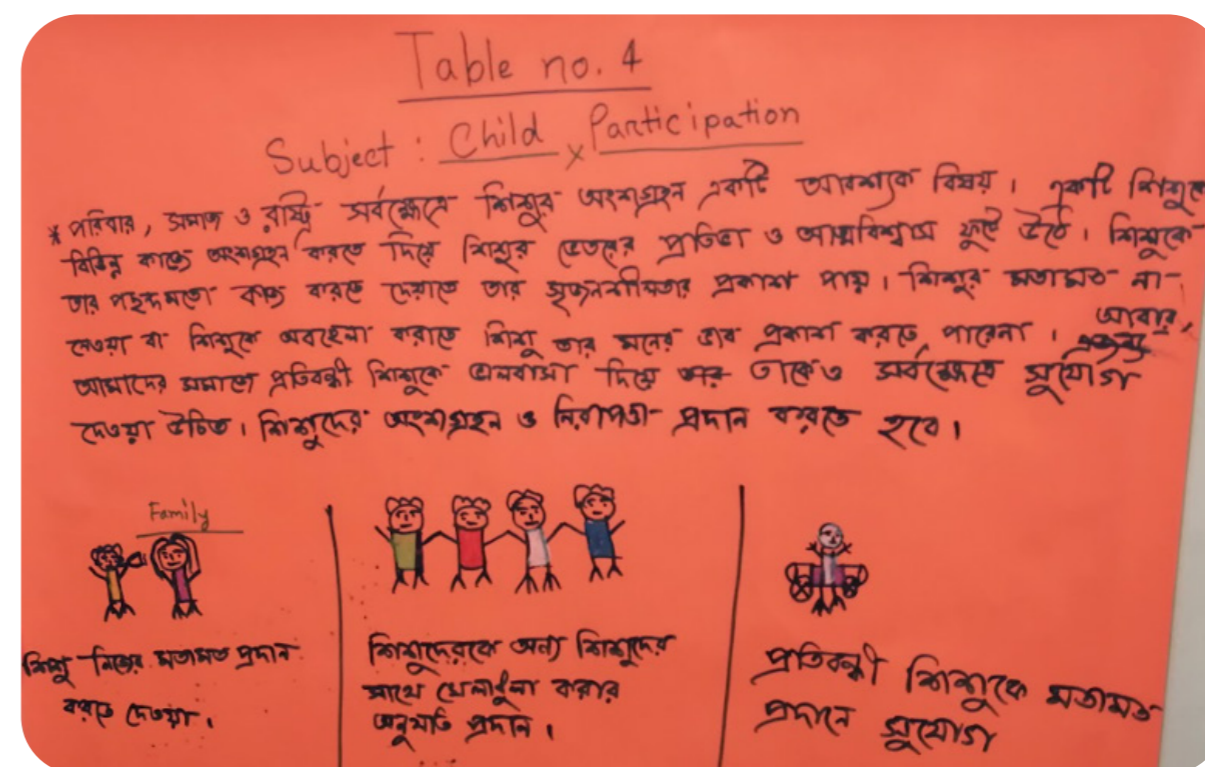 Table no. 4
Subject : Child x Participation
* পরিবার, সমাজ ও রাষ্ট্রি সর্বক্ষেত্রে শিশুর অংশগ্রহন একটি আবশ্যক বিষয়। একটি শিশুকে
বিভিন্ন কাজে অংশগ্রহন করতে দিয়ে শিশুর ভেতরের প্রতিভা ও আত্মবিশ্বাস ফুটে উঠে। শিশুকে
তার পছন্দমতো কাজ করতে দেয়াতে তার সৃজনশীলতার প্রকাশ পায়। শিশুর মতামত না
নেওয়া বা শিশুকে অবহেলা করাতে শিশু তার মনের ভাব প্রকাশ করতে পারেনা। আবার,
আমাদের সমাজে প্রতিবন্ধী শিশুকে ভালবাসা দিয়ে তাকেও সর্বক্ষেত্রে সুযোগ
দেওয়া উচিত। শিশুদের অংশগ্রহন ও নিরাপত্তা প্রদান করতে হবে।
Family
শিশু নিজের মতামত প্রদান
করতে দেওয়া।
শিশুদেরকে অন্য শিশুদের
সাথে খেলাধুলা করার
অনুমতি প্রদান।
প্রতিবন্ধী শিশুকে মতামত
প্রদানে সুযোগ